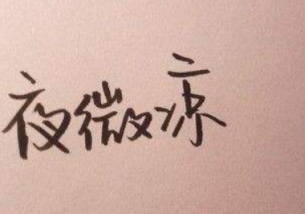 夜微凉